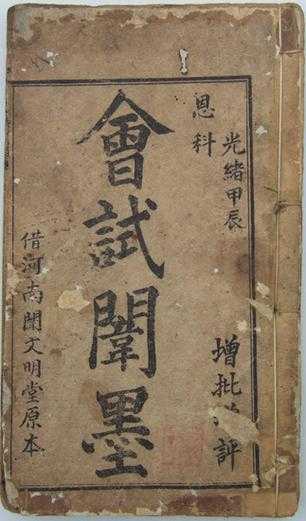 光緒甲辰
恩科
會試闈墨
增批 評
借河南闈文明堂原本